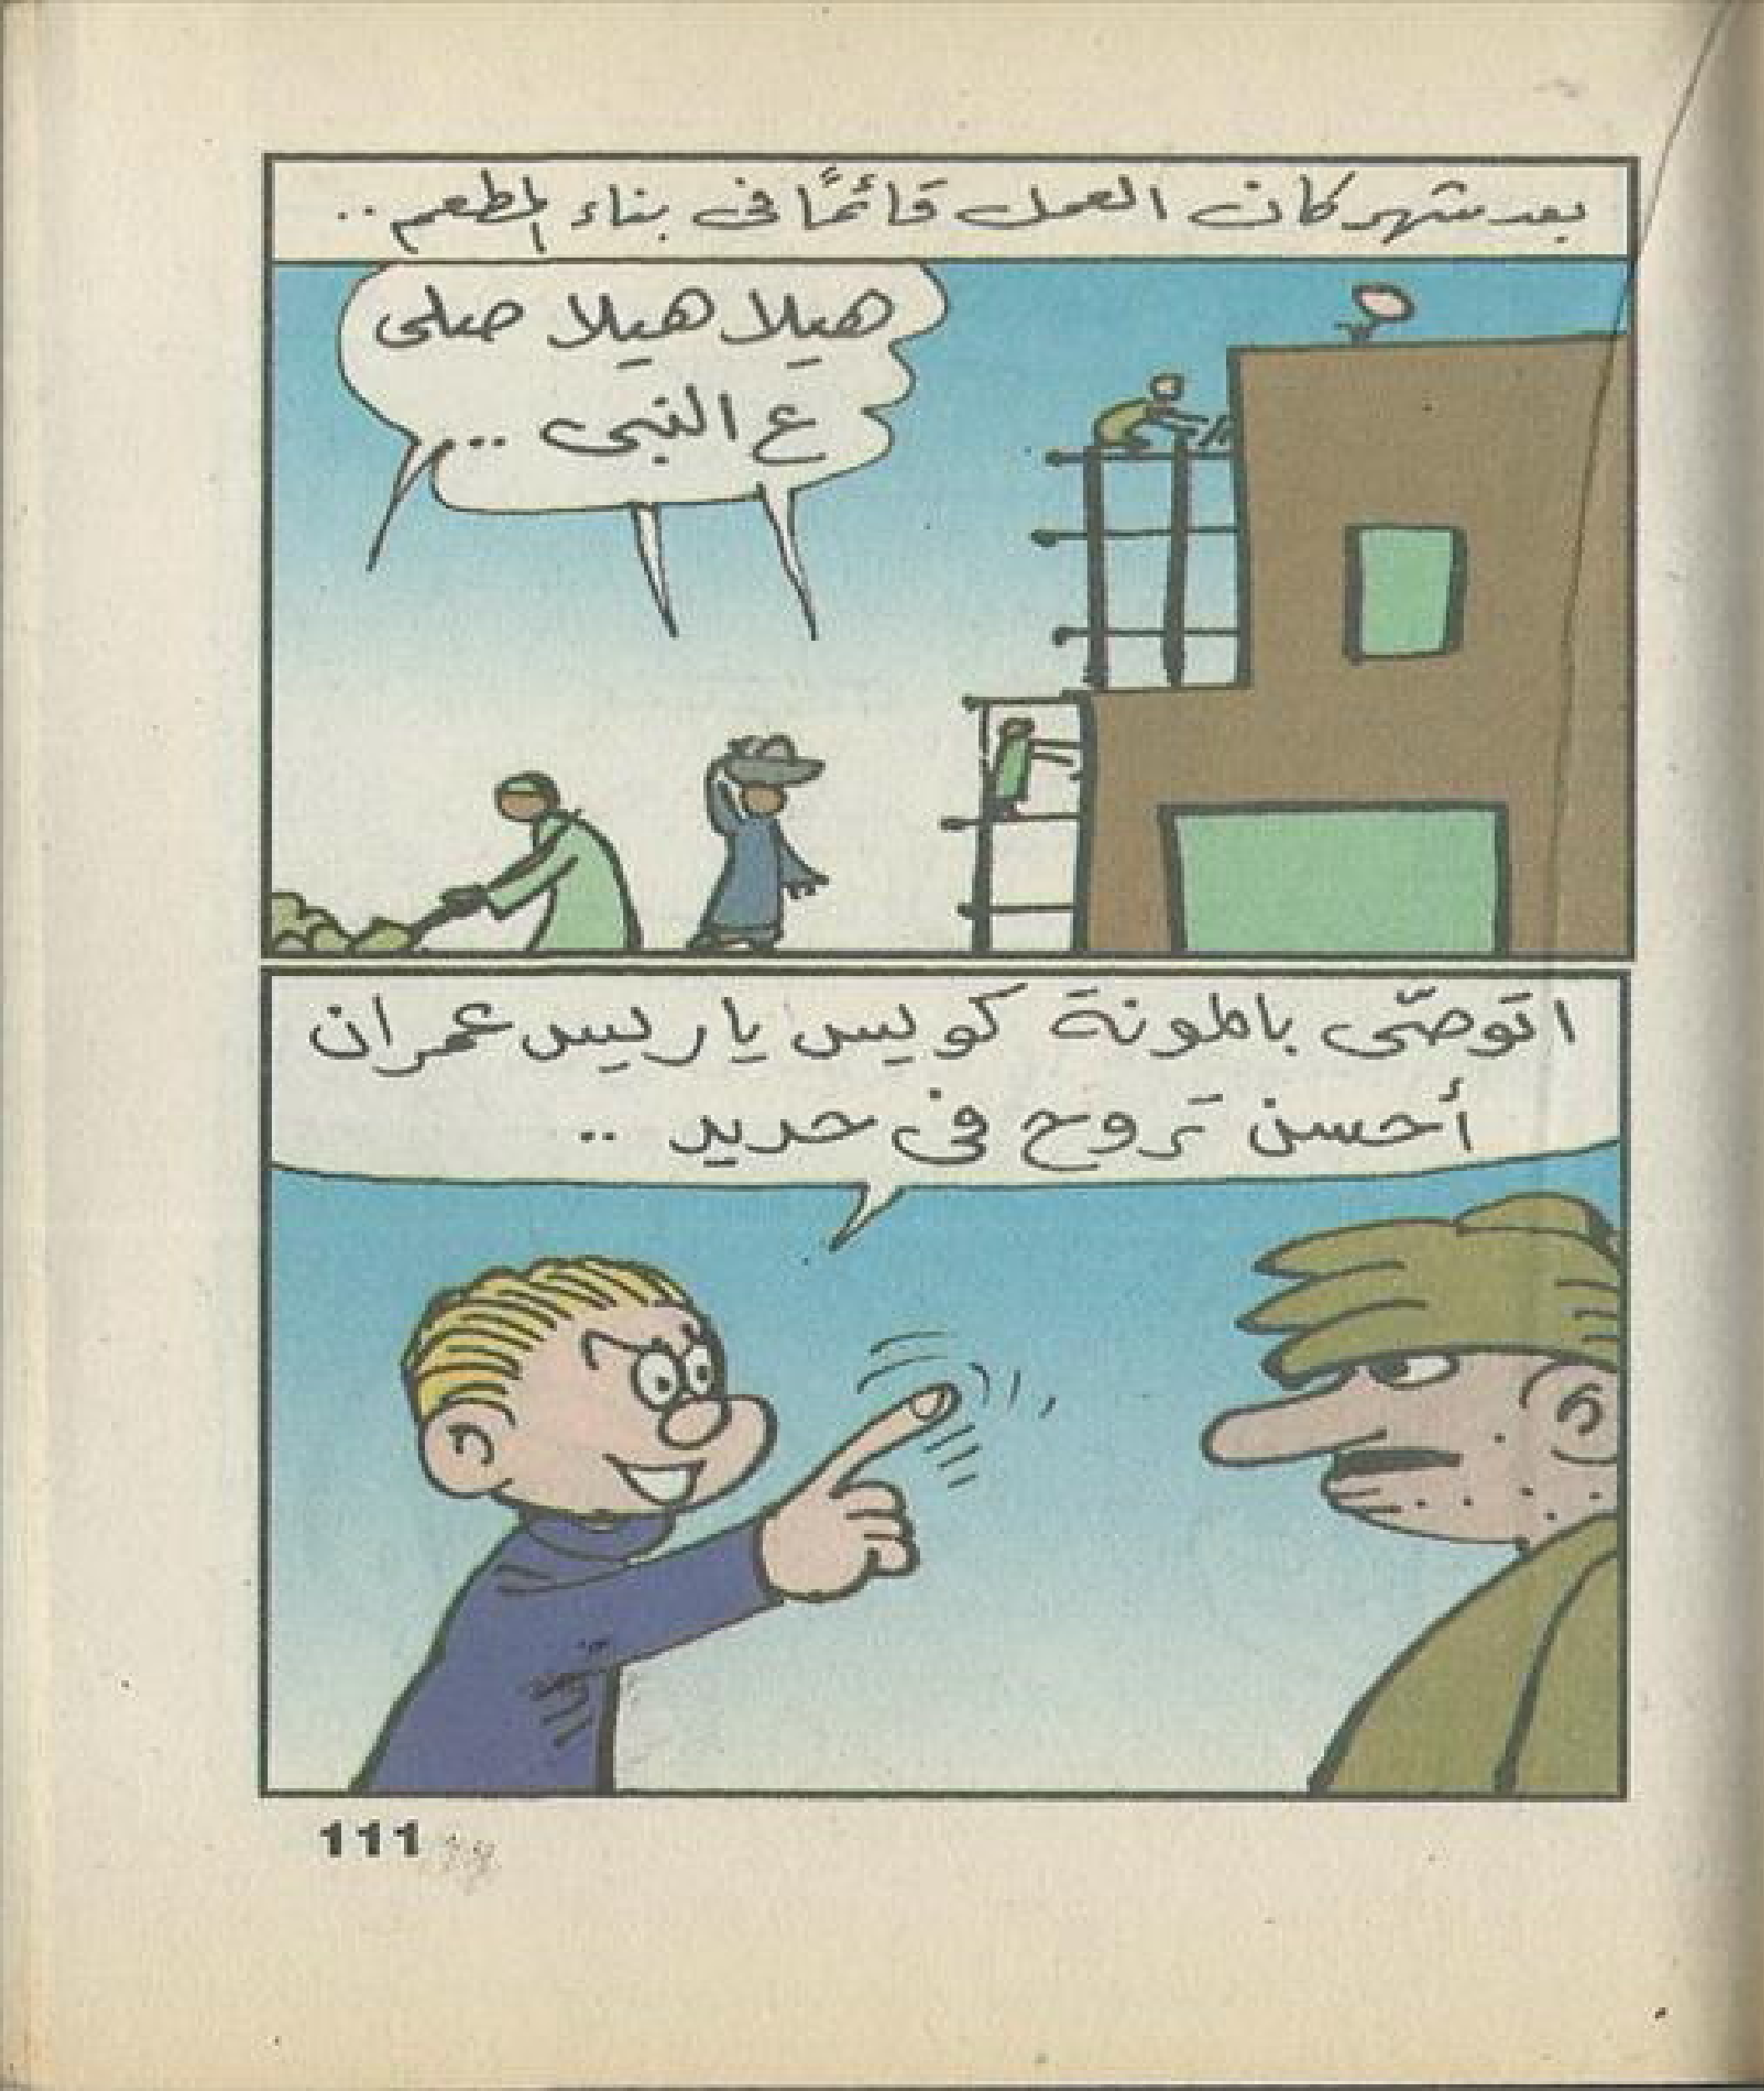 بعد شهر كان العمل قائمًا فى بناء المطعم ..
هيلا هيلا صلى
ع النبى ...
اتوصّى بالمونة كويس يا ريس عمران
أحسن تروح فى حديد ..
111